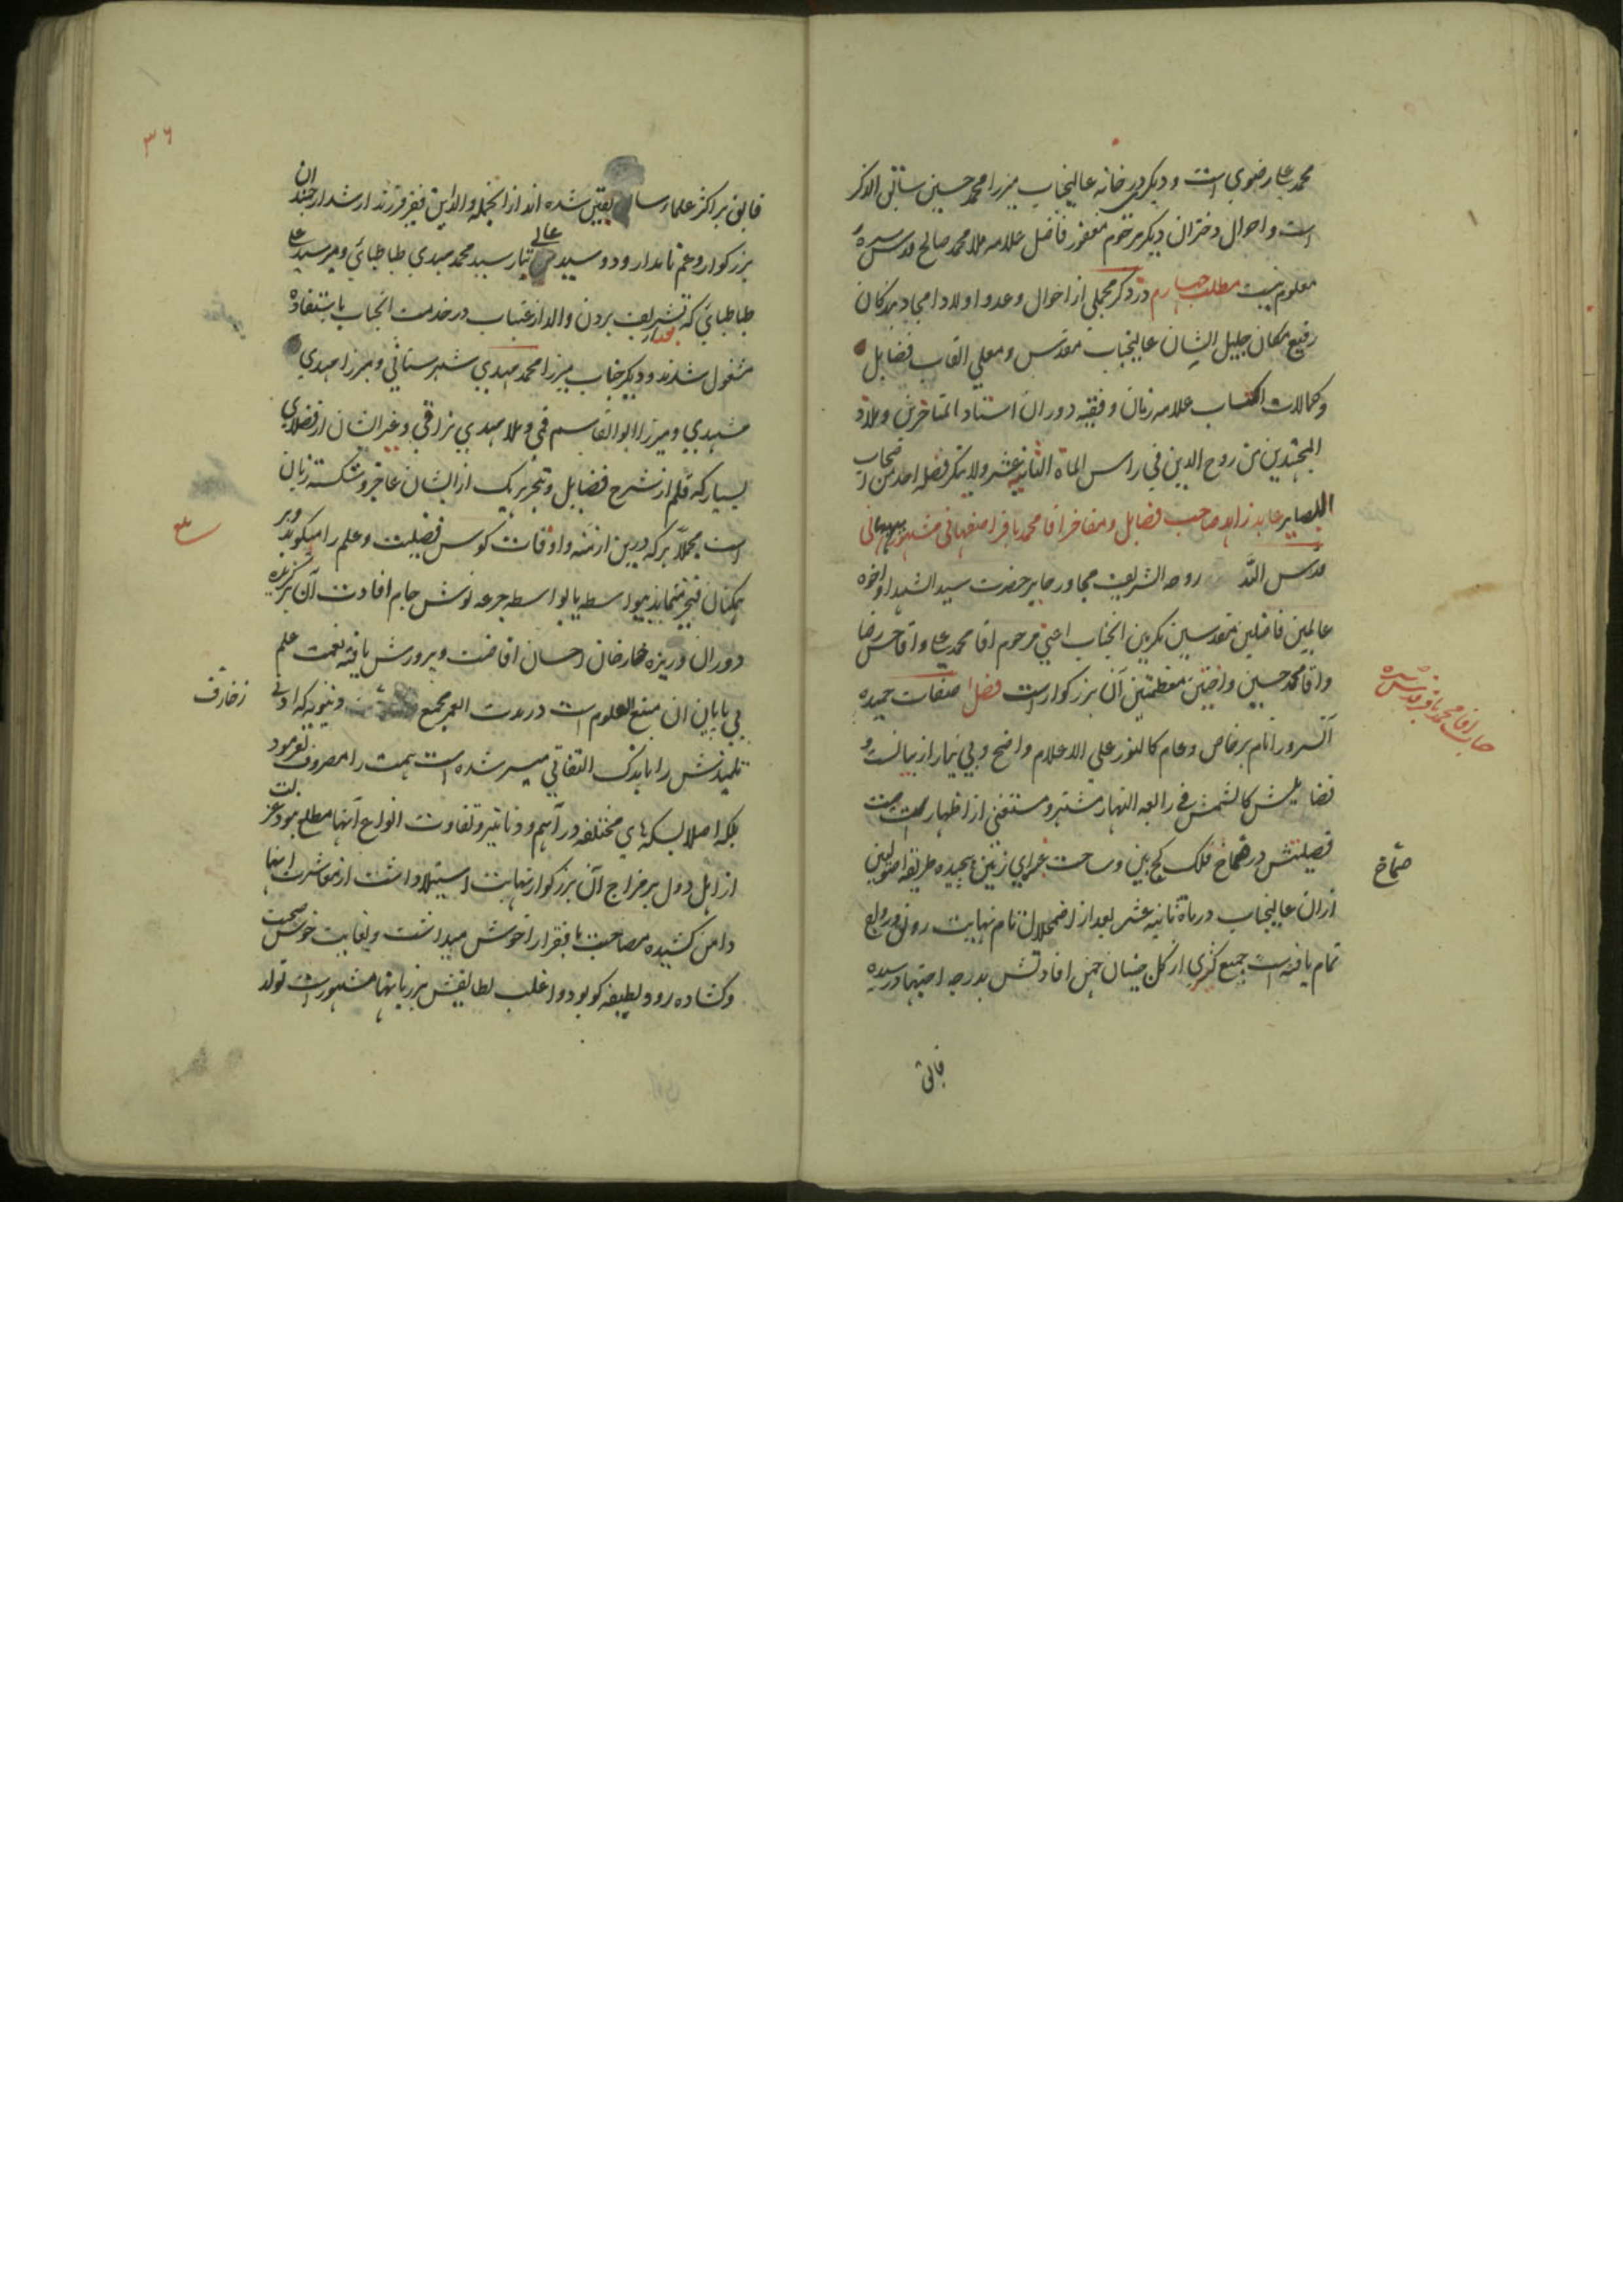 محمد علی رضوی است و دیگر در خانه عالیجناب میرزا محمد حسین سابق الذکر
است و احوال دختران دیگر مرحوم مغفور فاضل علامه ملا محمد صالح قدس سره
معلوم نیست مطلب چهارم در ذکر مجملی از احوال و عدد اولاد امجاد بندگان
رفیع مکان جلیل الشان عالیجناب مقدس و معلی القاب فضایل
و کمالات اکتساب علامه زمان و فقیه دوران استاد المتاخرین و ملاذ
المجتهدین روح الدین فی راس الماة الثانیة عشر ولا ینکر فضله احد من اصحاب
البصایر عابد زاهد صاحب فضایل و مفاخر اقا محمد باقر اصفهانی مشهور ببهبهانی
قدس الله روحه الشریف مجاور حایر حضرت سید الشهدا و اخوه
عالمین فاضلین مقدسین مکرمین انجناب اعنی مرحوم اقا محمد علی و اقا حسن رضا
و اقا محمد حسین و اختین معظمتین آن بزرگوار است فضل صفات حمیده
آنسرور انام بر خاص و عام کالنور علی الاعلام واضح و بی نیاز از بیانست و
فضایلش کالشمس فی رابعة النهار مشتهر و مستغنی از اظهار است صیت
فضیلتش در صماخ فلک کج بین و ساحت غبرای زمین پیچیده طریقه اصولیین
ازان عالیجناب در ماة ثانیه عشر بعد از اضمحلال تام نهایت رونق و رواج
تمام یافته است جمیع کثیری از گل چینان چمن افادتش بدرجه اجتهاد رسیده
فایق
جناب اقا محمد باقر قدس سره
صماخ
۳۶
فایق بر اکثر علماء یقین شده اند از انجمله والد این فقیر فرزند ارشد ارجمند ان
بزرگوار و عم نامدار و دو سید عالی تبار سید محمد مهدی طباطبائی و میر سید علی
طباطبائی که بعد از تشریف بردن والد از عتبات در خدمت انجناب باستفاده
مشغول شدند و دیگر جناب میرزا محمد مهدی شهرستانی و میرزا مهدی
مشهدی و میرزا ابو القاسم قمی و ملا مهدی نراقی و غیر ایشان از فضلای
بسیار که قلم از شرح فضایل و تبحر هر یک از ایشان عاجز و شکسته زبان
است مجملا هر که درین ازمنه و اوقات کوس فضیلت و علم را میکوبد و بر
همگنان فخر مینماید بیواسطه یا بواسطه جرعه نوش جام افادت آن برگزیده
دوران و ریزه خوار خان احسان افاضت و پرورش یافته نعمت علم
بی پایان ان منبع العلوم است در مدت العمر بجمع دنیویه که ادنی
زخارف
تلمیذش را باندک التفاتی میسر شده است همت را مصروف نفرمود
بلکه اصلا بسکه های مختلفه دراهم و دنانیر و تفاوت انواع آنها مطلع نبود عزلت
از اهل دول بر مزاج آن بزرگوار نهایت استیلا داشت از معاشرت اینها
دامن کشیده مصاحبت با فقرا را خوش میداشت و بغایت خوش صحبت
و گشاده رو و لطیفه گو بود و اغلب لطایفش بر زبانها مشهور است تولد